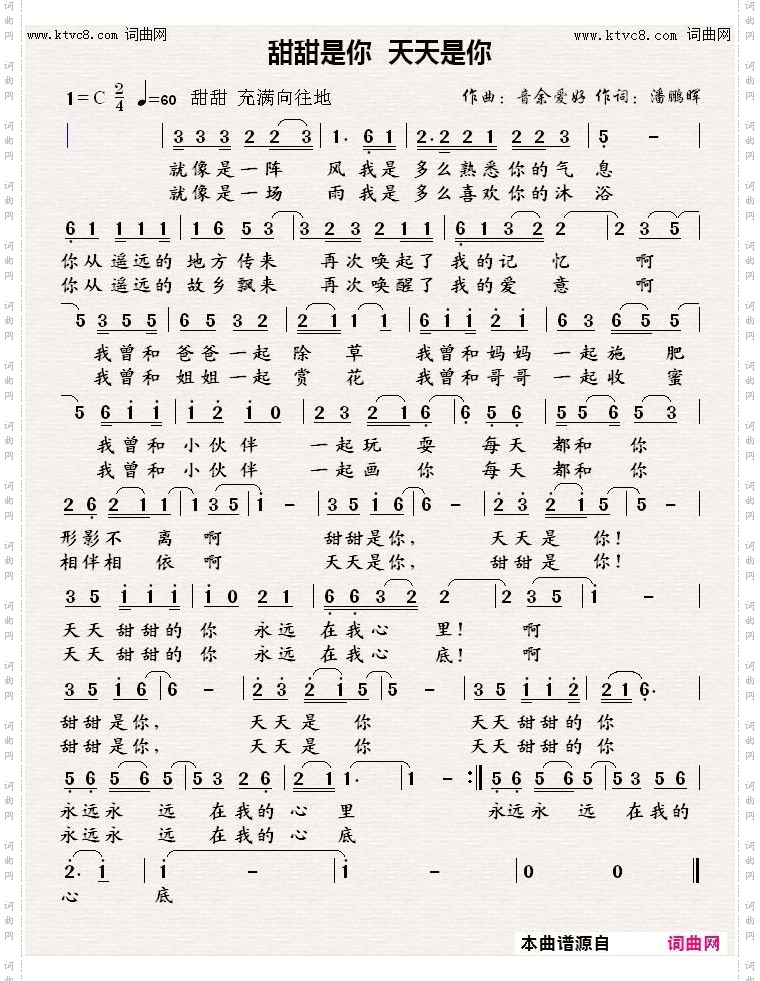 www.ktvc8.com 词曲网
www.ktvc8.com 词曲网
甜甜是你 天天是你
1=C 2/4 ♩=60 甜甜 充满向往地
作曲：音余爱好 作词：潘鹏晖
3 3 3 2 2 3 | 1· 6 1 | 2· 2 2 1 2 2 3 | 5 – |
就像是一阵 风我是 多么熟悉你的气 息
就像是一场 雨我是 多么喜欢你的沐 浴
6 1 1 1 1 | 1 6 5 3 | 3 2 3 2 1 | 6 1 3 2 2 | 2 3 5 |
你从遥远的 地方传来 再次唤起了 我的记 忆 啊
你从遥远的 故乡飘来 再次唤醒了 我的爱 意 啊
5 3 5 5 | 6 5 3 2 | 2 1 1 1 | 6 1 1 2 1 | 6 3 6 5 5 |
我曾和 爸爸一起 除 草 我曾和妈妈 一起施 肥
我曾和 姐姐一起 赏 花 我曾和哥哥 一起收 蜜
5 6 1 1 | 1 2 1 0 | 2 3 2 1 6 | 6 5 6 | 5 5 6 5 3 |
我曾和 小伙伴 一起玩 耍 每天 都和 你
我曾和 小伙伴 一起画 你 每天 都和 你
2 6 2 1 1 | 1 3 5 1 – | 3 5 1 6 | 6 – | 2 3 2 1 5 | 5 – |
形影不 离啊 甜甜是你， 天天是 你！
相伴相 依啊 天天是你， 甜甜是 你！
3 5 1 1 1 | 1 0 2 1 | 6 6 3 2 2 | 2 3 5 | 1 – |
天天甜甜的 你 永远 在我心 里！ 啊
天天甜甜的 你 永远 在我心 底！ 啊
3 5 1 6 | 6 – | 2 3 2 1 5 | 5 – | 3 5 1 1 2 | 2 1 6· |
甜甜是你， 天天是 你 天天甜甜的 你
甜甜是你， 天天是 你 天天甜甜的 你
5 6 5 6 5 | 5 3 2 6 | 2 1 1· | 1 – :| 5 6 5 6 5 | 5 3 5 6 |
永远永 远 在我的 心 里 永远永 远 在我的
永远永 远 在我的 心 底
2· 1 | 1 – | 1 – | 0 0 ||
心 底
本曲谱源自 词曲网